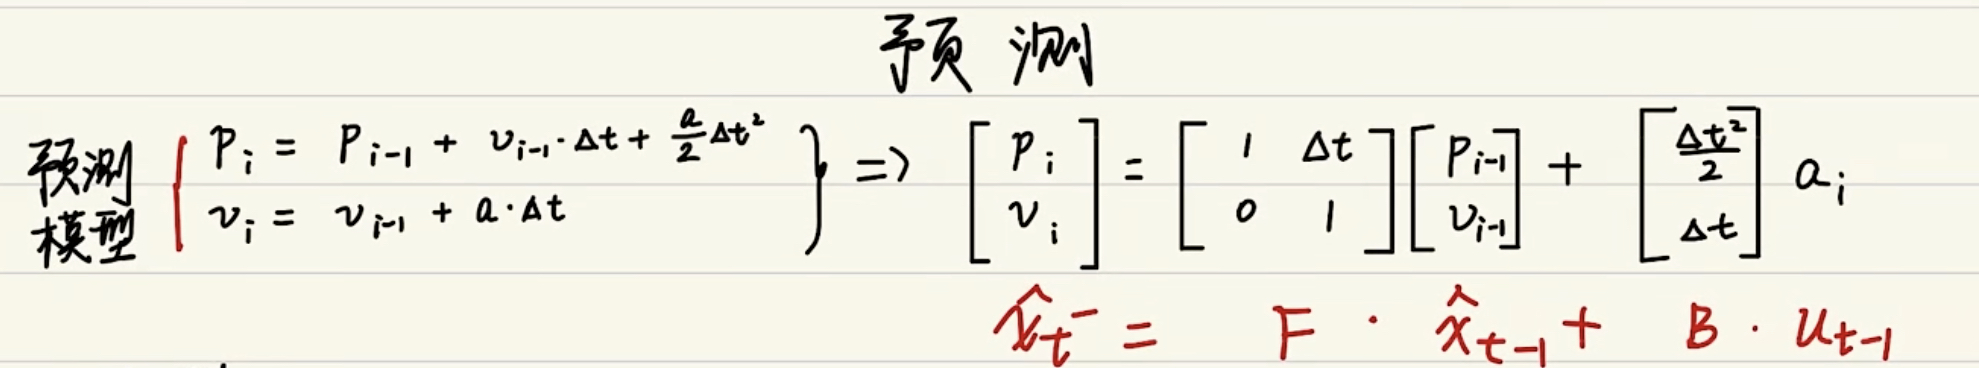 预测
预测模型 { p_i = p_{i-1} + v_{i-1}·Δt + \frac{a}{2}Δt²
v_i = v_{i-1} + a·Δt } => [p_i; v_i] = [1 Δt; 0 1] [p_{i-1}; v_{i-1}] + [\frac{Δt²}{2}; Δt] a_i
\hat{x}_t^- = F · \hat{x}_{t-1} + B · u_{t-1}